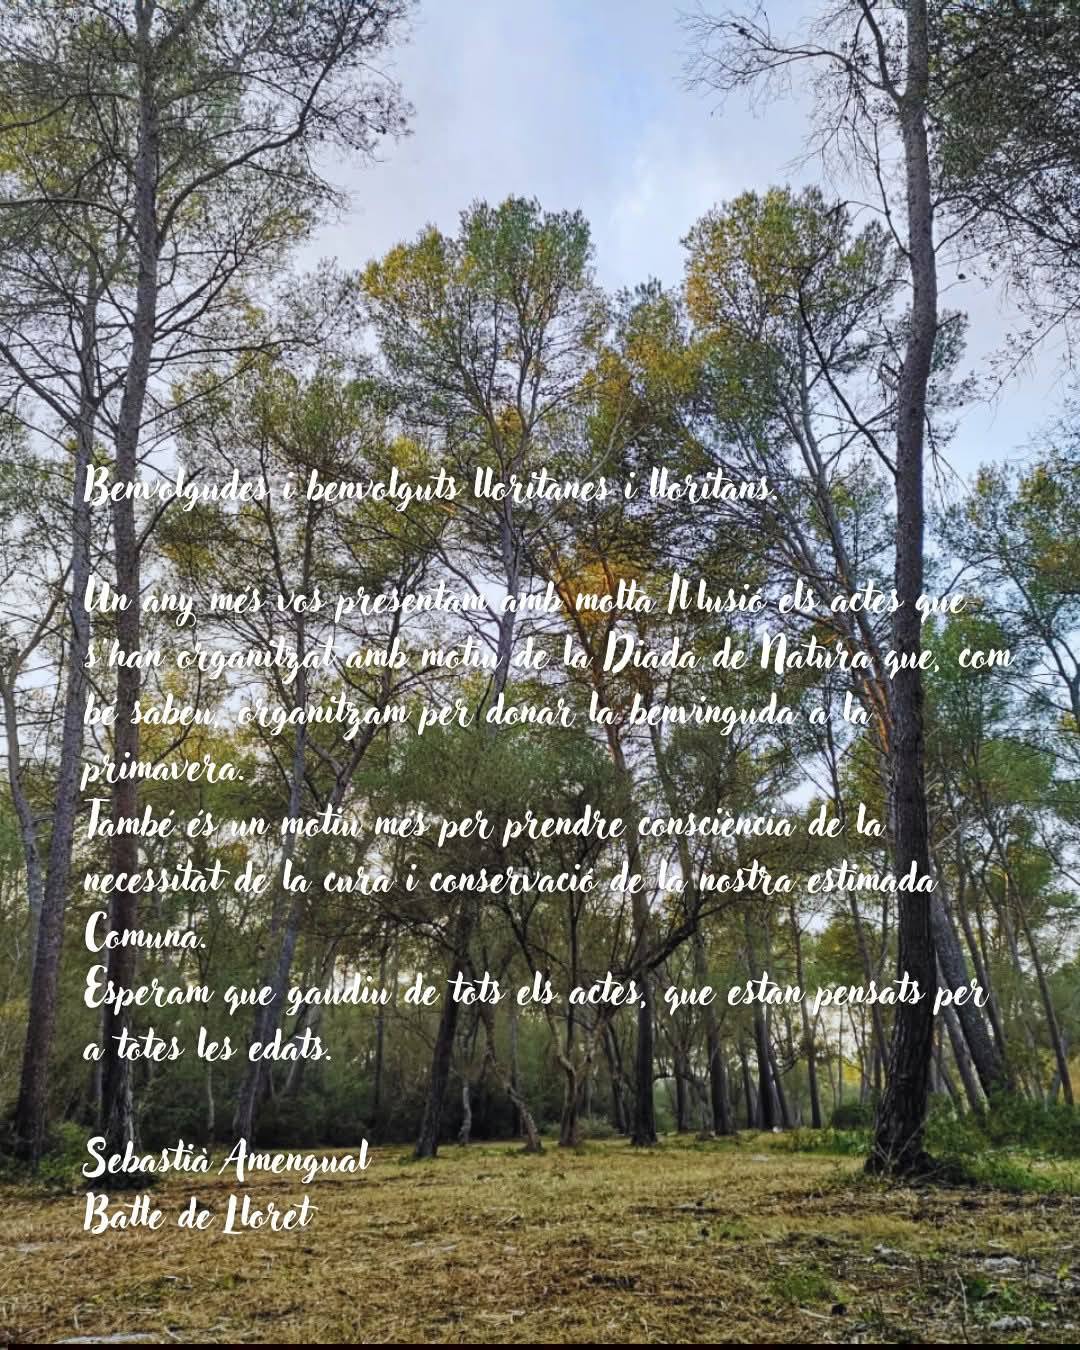 Benvolgudes i benvolguts lloritanes i lloritans.
Un any més vos presentam amb molta Il·lusió els actes que
s'han organitzat amb motiu de la Diada de Natura que, com
bé sabeu, organitzam per donar la benvinguda a la
primavera.
També és un motiu més per prendre consciència de la
necessitat de la cura i conservació de la nostra estimada
Comuna.
Esperam que gaudiu de tots els actes, que estan pensats per
a totes les edats.
Sebastià Amengual
Batle de Lloret